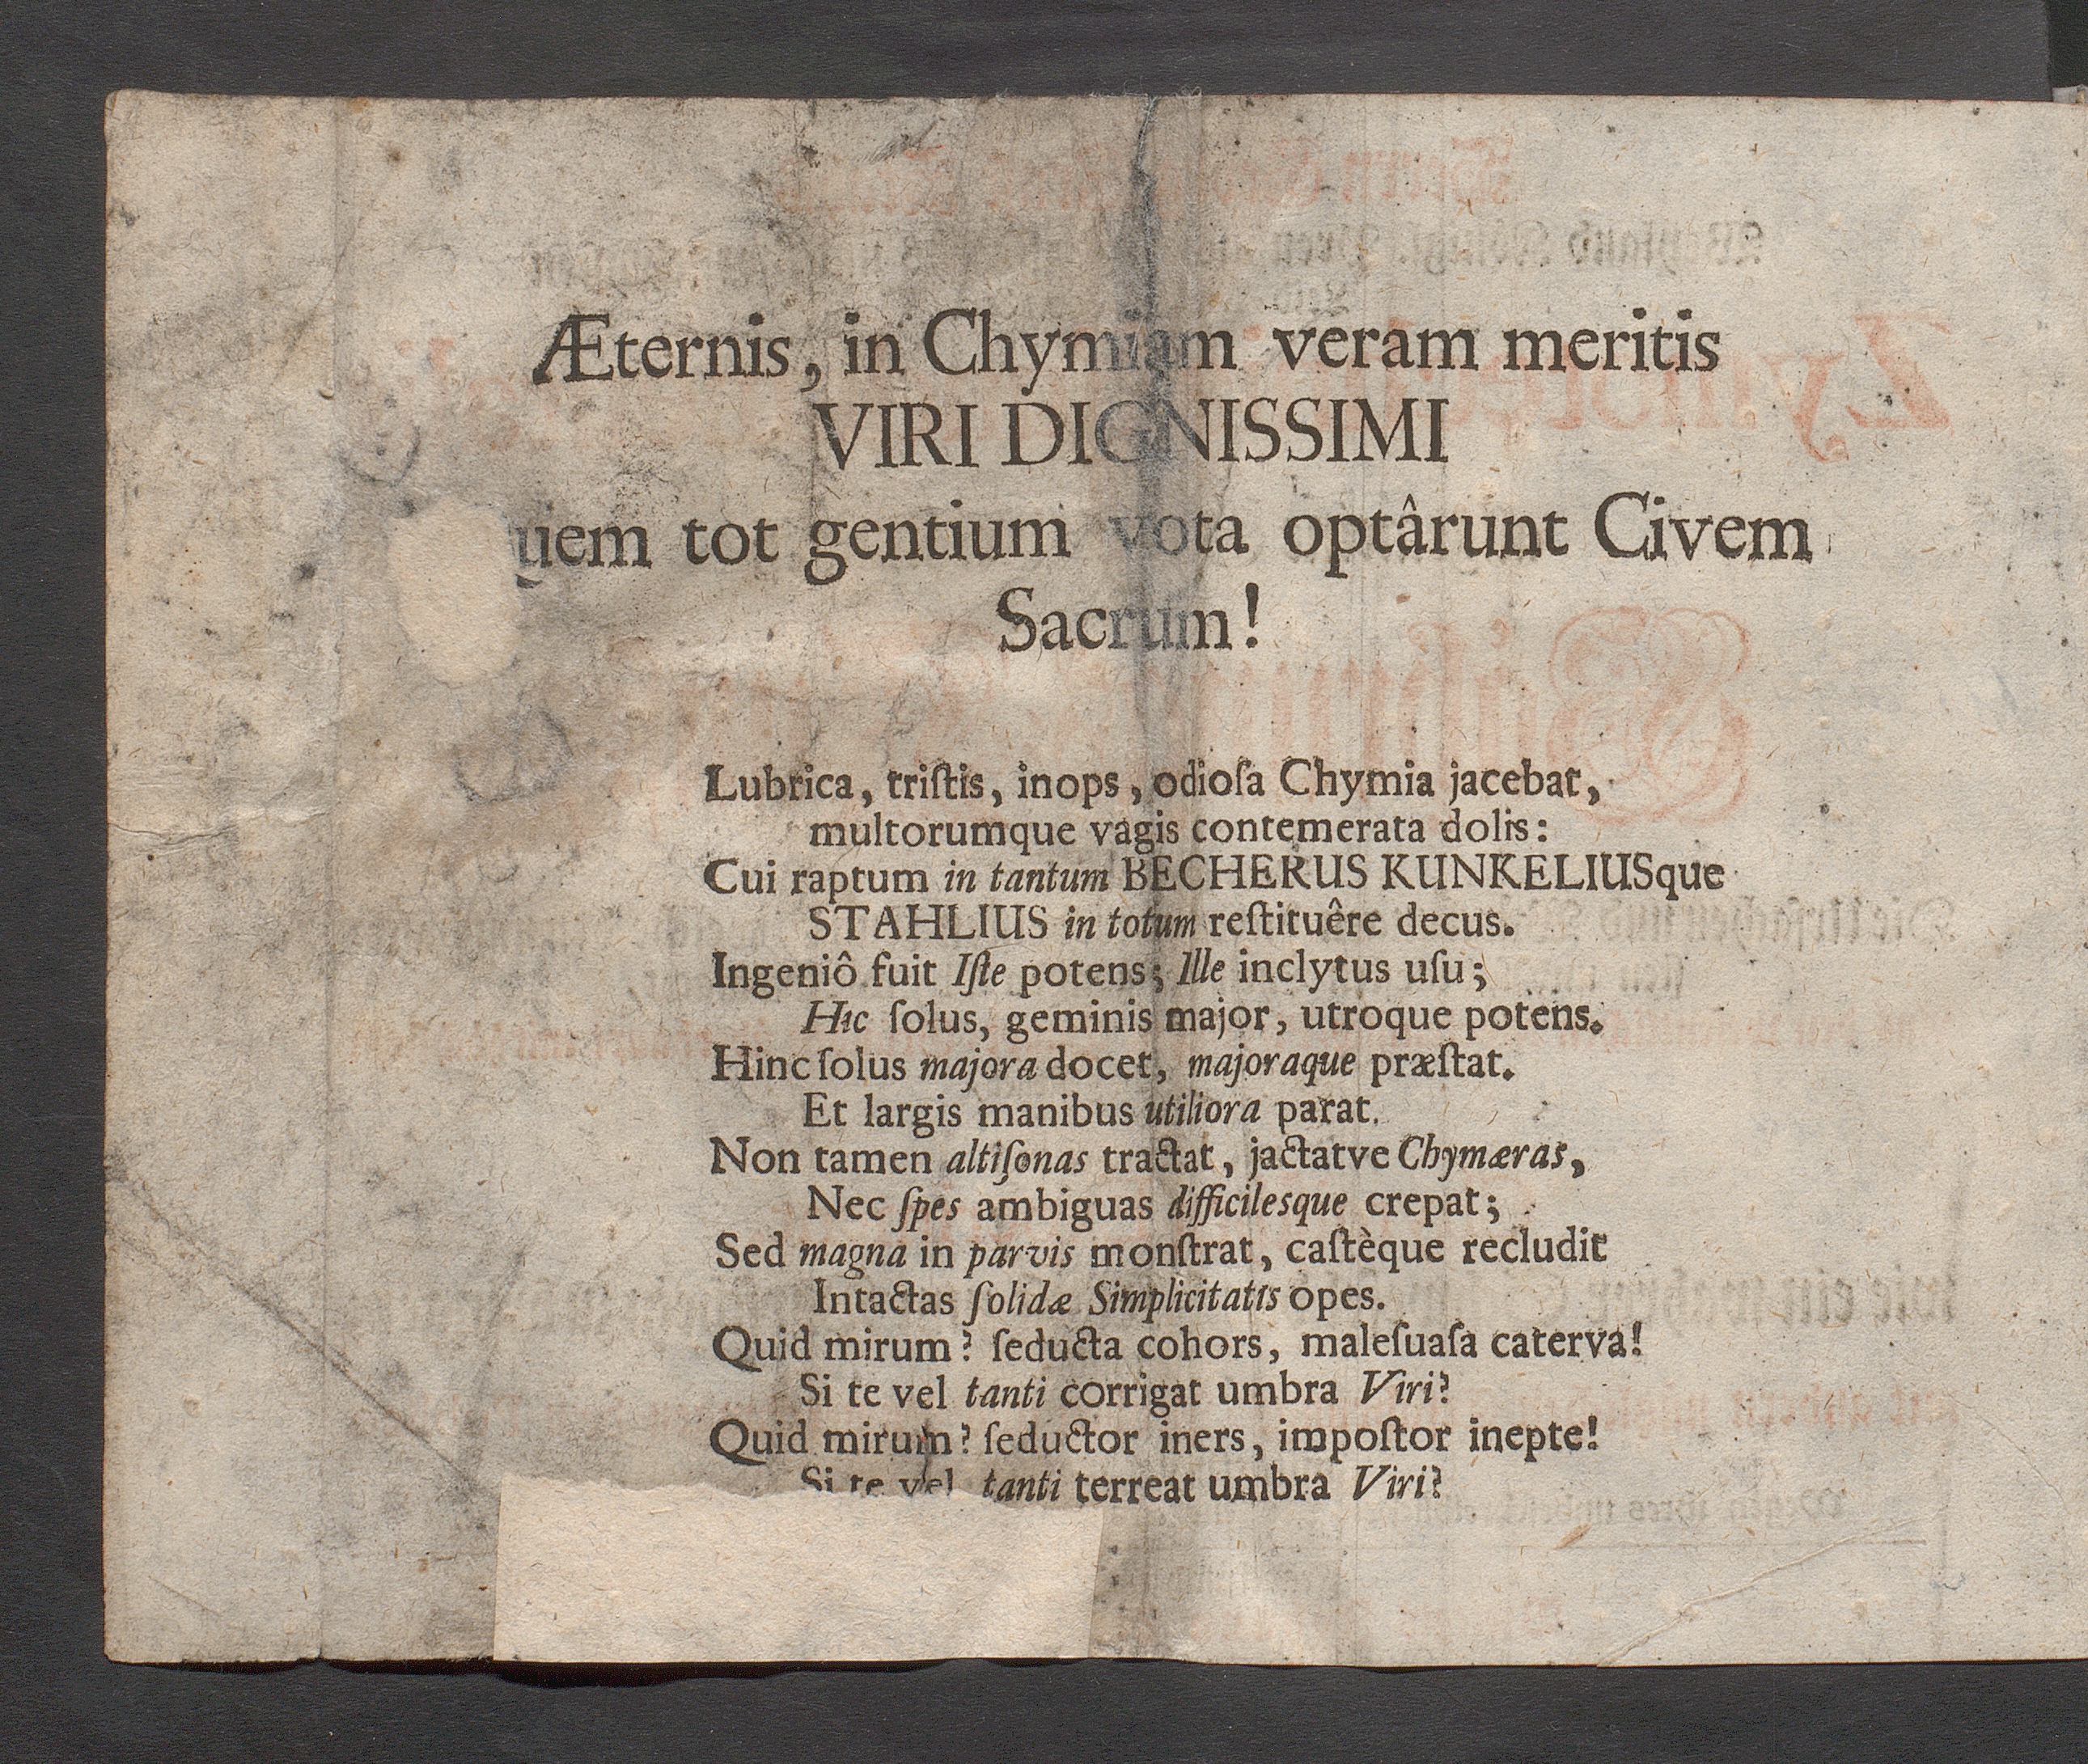 Æternis, in Chymiam veram meritis
VIRI DIGNISSIMI
uem tot gentium vota optârunt Civem
Sacrum!
Lubrica, triſtis, inops, odioſa Chymia jacebat,
multorumque vagis contemerata dolis:
Cui raptum in tantum BECHERUS KUNKELIUSque
STAHLIUS in totum reſtituêre decus.
Ingeniô fuit Iſte potens; Ille inclytus uſu;
Hic ſolus, geminis major, utroque potens.
Hinc ſolus majora docet, majoraque præſtat.
Et largis manibus utiliora parat.
Non tamen altiſonas tractat, jactatve Chymæras,
Nec ſpes ambiguas difficilesque crepat;
Sed magna in parvis monſtrat, caſtèque recludit
Intactas ſolidæ Simplicitatis opes.
Quid mirum? ſeducta cohors, maleſuaſa caterva!
Si te vel tanti corrigat umbra Viri?
Quid mirum? ſeductor iners, impoſtor inepte!
Si te vel tanti terreat umbra Viri?